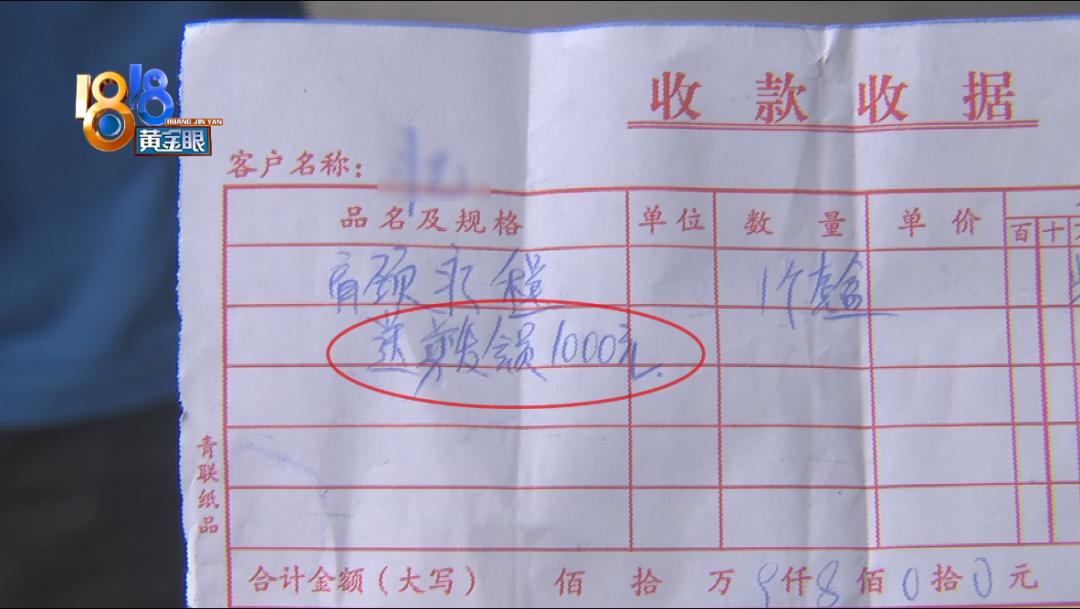 1818
HUANG JIN YAN
黄金眼
收款收据
客户名称:
品名及规格 单位 数量 单价 百 十
肩颈 1个
送剪发会员1000元
青联纸品
合计金额(大写) 佰 拾 万 9仟8佰0拾0元